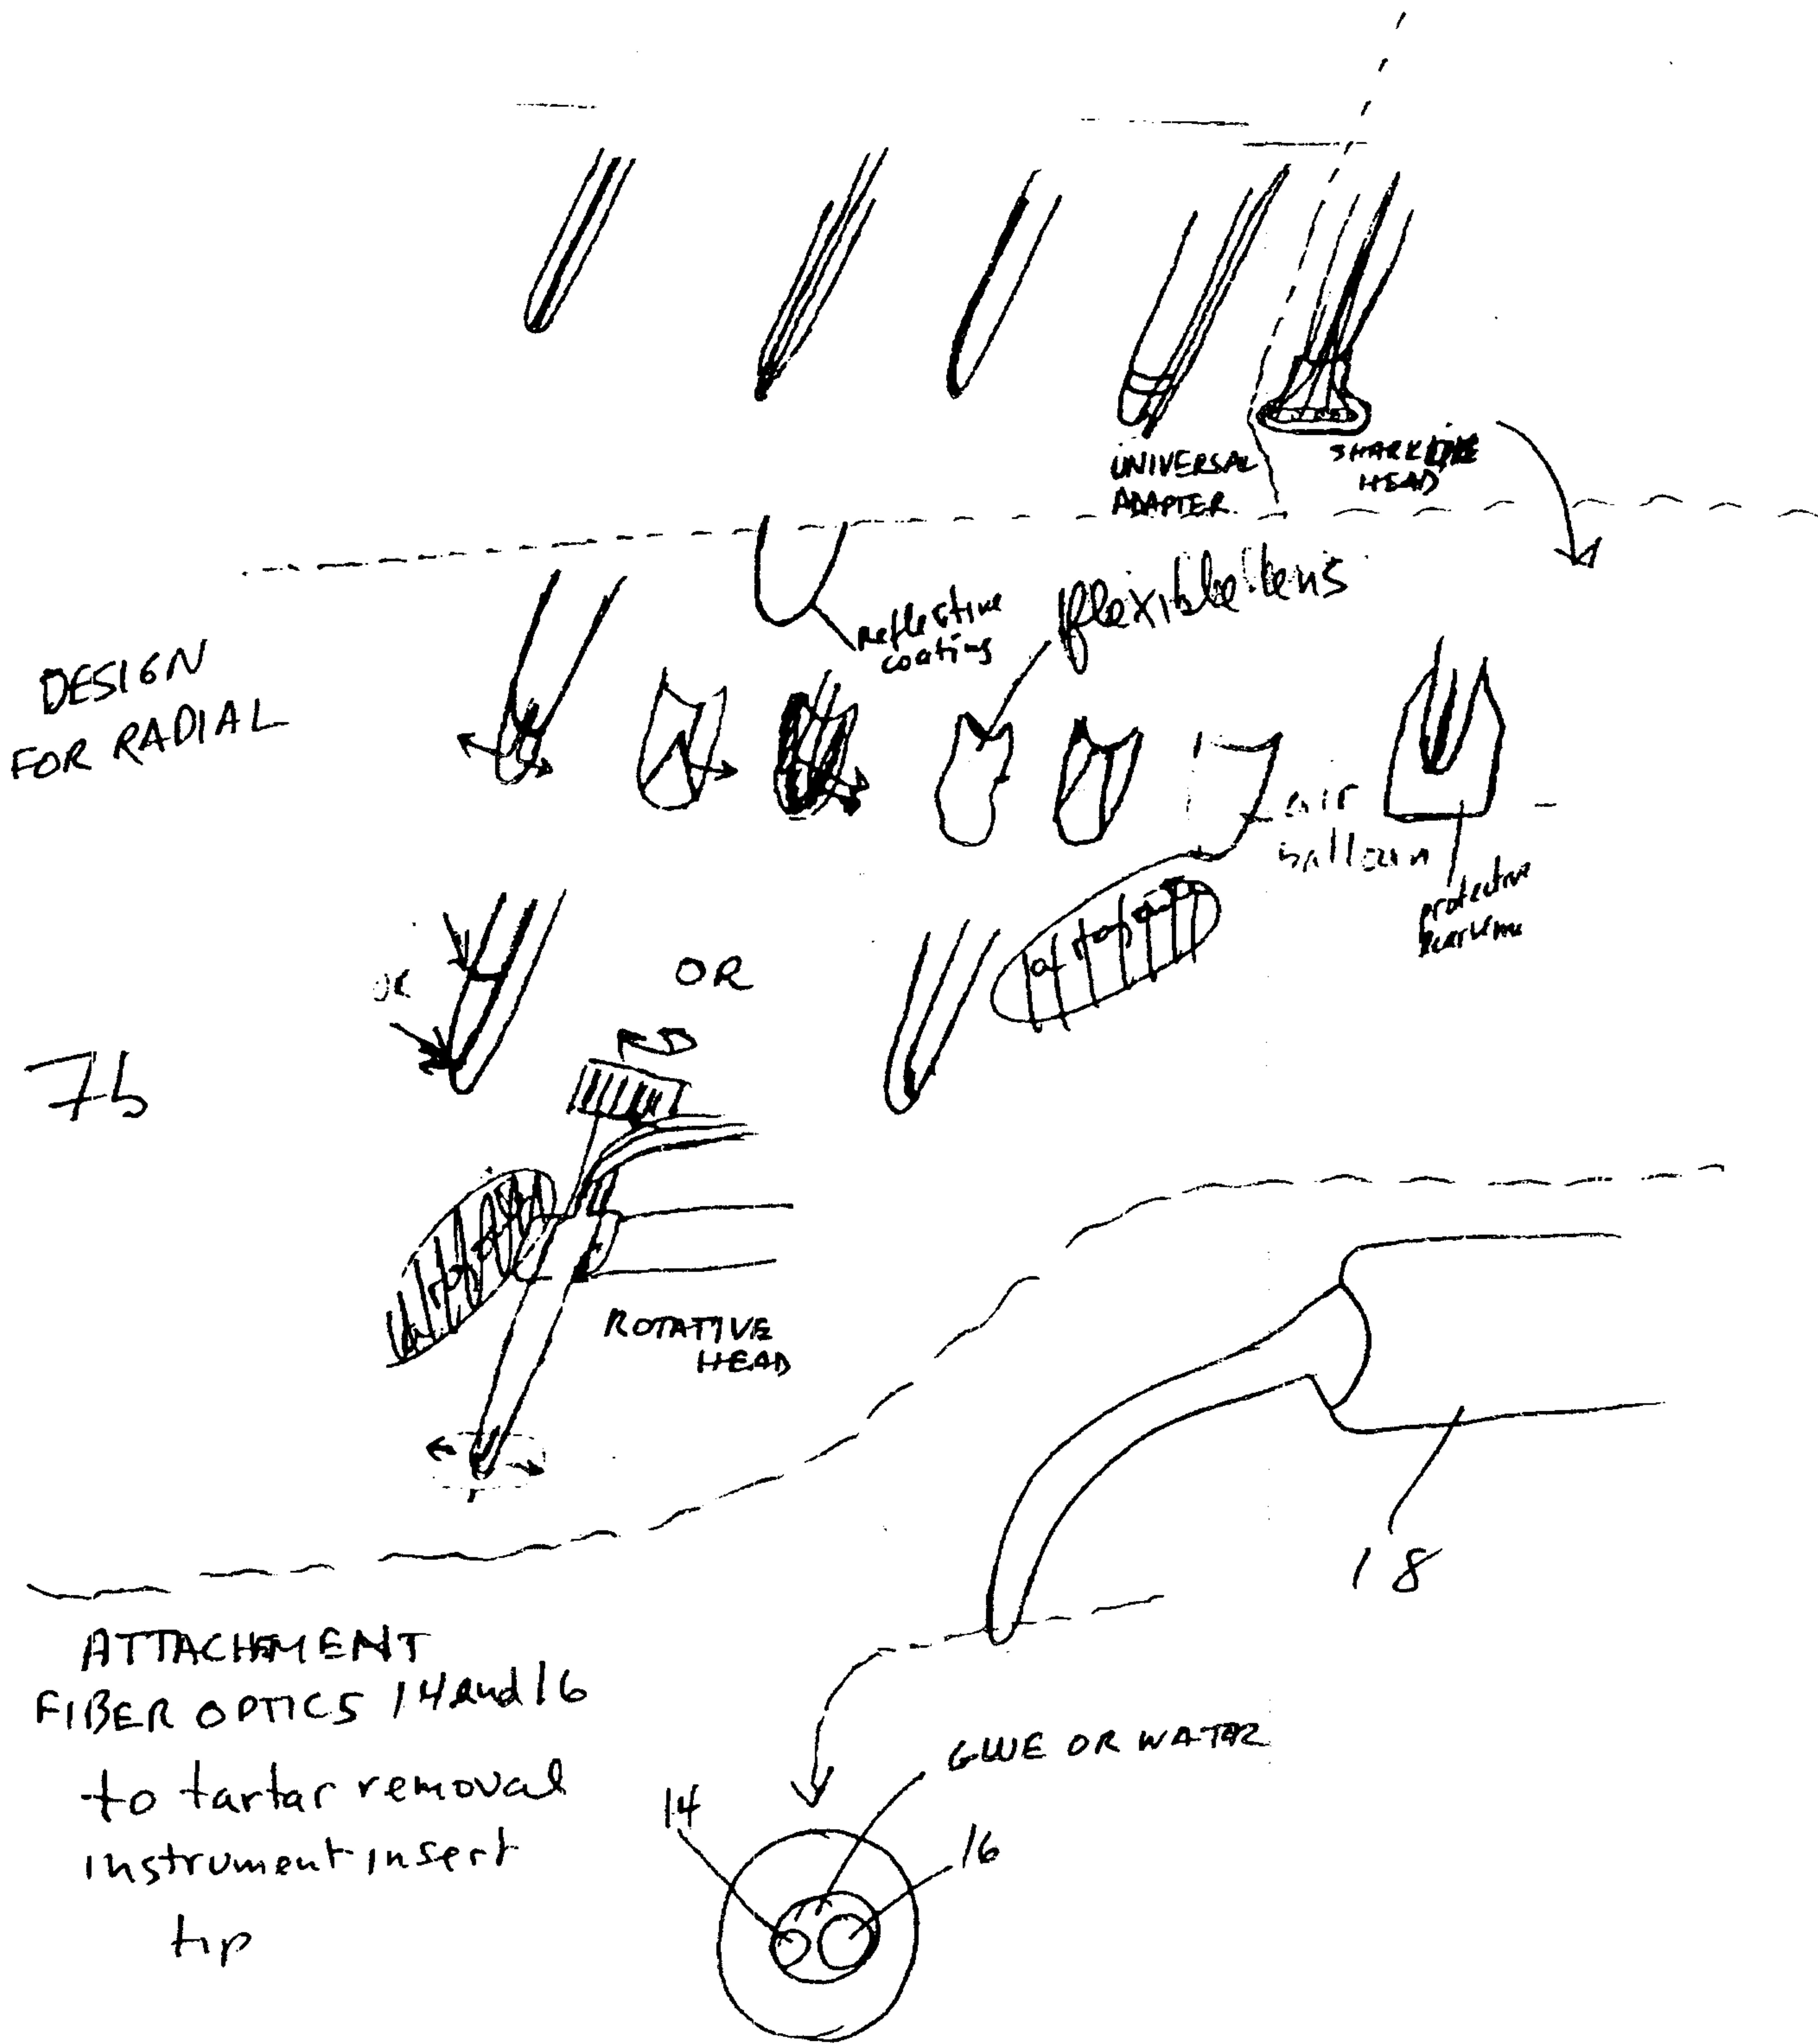 UNIVERSAL
ADAPTER
SHARKLIKE
HEAD
reflective
coating
flexible lens
DESIGN
FOR RADIAL
air
balloon
protective
OR
OR
7b
ROTATIVE
HEAD
18
ATTACHEMENT
FIBER OPTICS 14 and 16
to tartar removal
instrument insert
tip
GLUE OR WATER
14
16